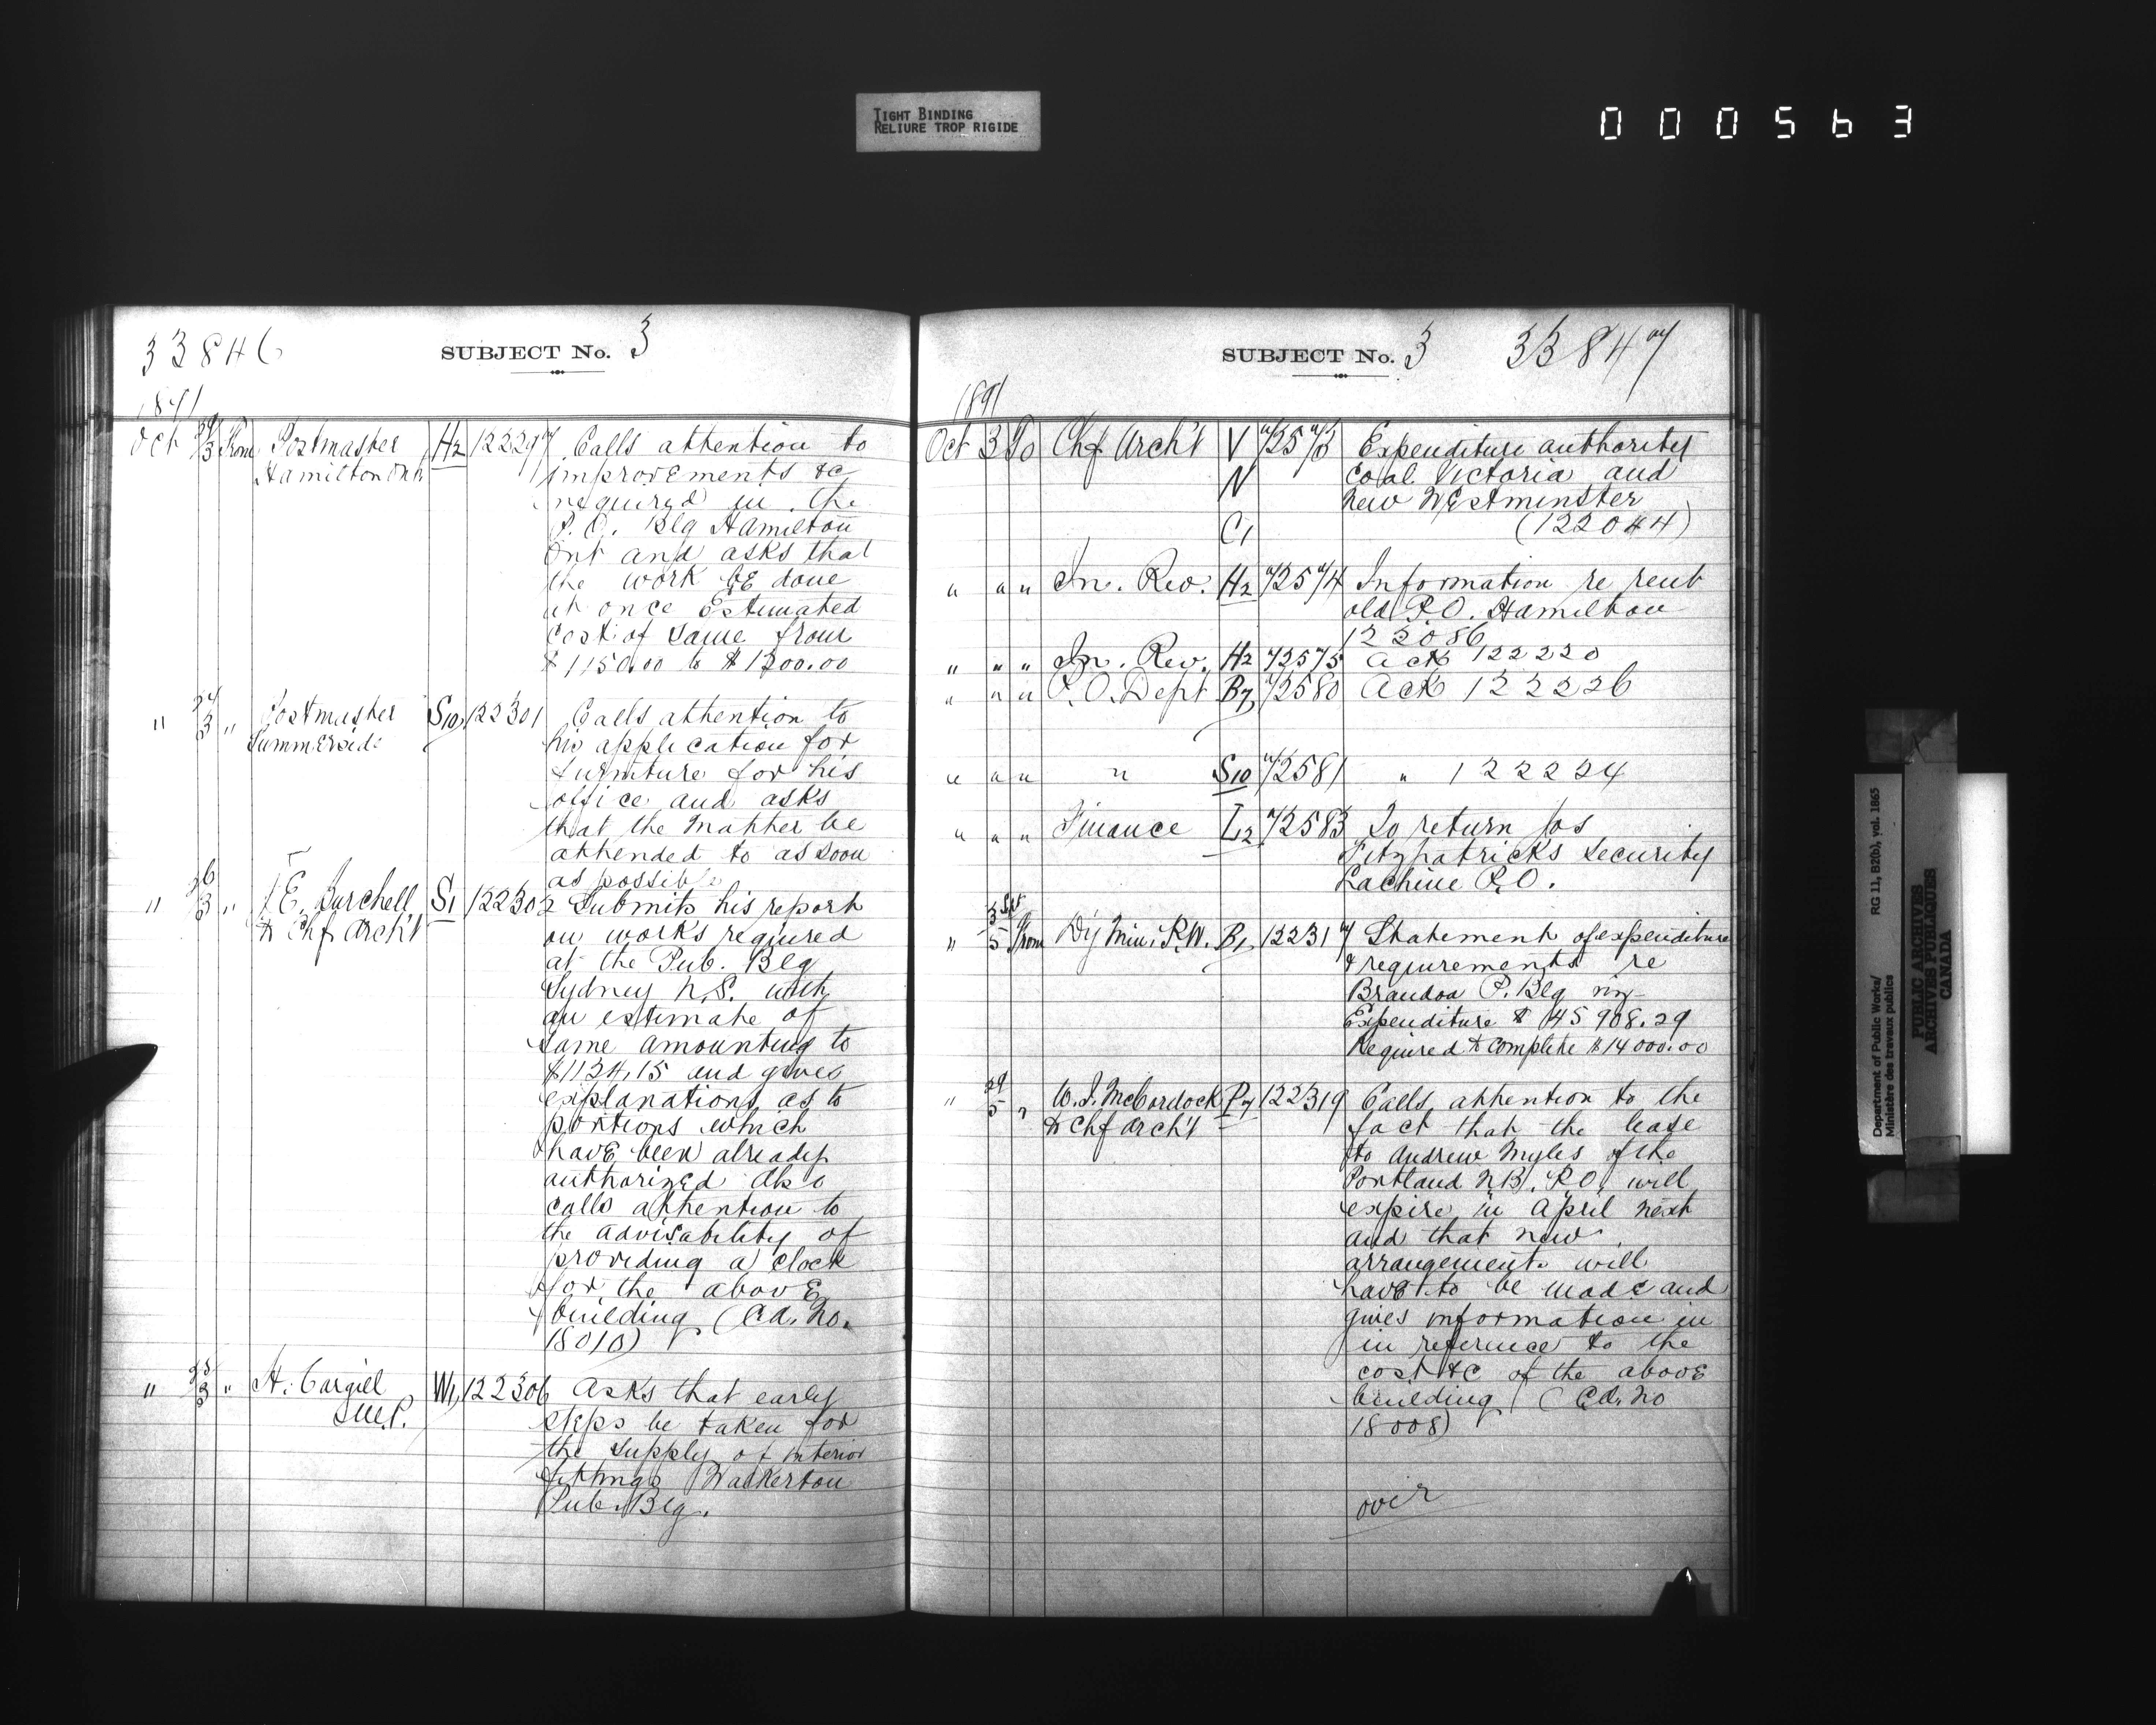 TIGHT BINDING
RELIURE TROP RIGIDE
000563
33846
SUBJECT No. 3
1891
Oct 29/3 From Postmaster H2 122297 Calls attention to
Hamilton Ont improvements &c
required in the
P.O. Blg Hamilton
Ont and asks that
the work be done
at once Estimated
cost of same from
$1150.00 to $1200.00
" 24/3 " Postmaster S10 122301 Calls attention to
Summerside his application for
furniture for his
office and asks
that the matter be
attended to as soon
as possible
" 26/3 " J.E. Burchell S1 122302 Submits his report
to Chf Arch't on works required
at the Pub. Blg
Sydney N.S. with
an estimate of
same amounting to
$1134.15 and gives
explanations as to
portions which
have been already
authorized Also
calls attention to
the advisability of
providing a clock
for the above
building (Cd. No.
18010)
" 25/3 " H. Cargill W1 122306 Asks that early
M.P. steps be taken for
the supply of interior
fittings Walkerton
Pub. Blg.
SUBJECT No. 3
33847
1891
Oct 3 To Chf Arch't V 72573 Expenditure authority
N coal Victoria and
New Westminster
C1 (122044)
" " " In. Rev. H2 72574 Information re rent
old P.O. Hamilton
122086
" " " In. Rev. H2 72575 Ack 122220
" " " P.O. Dept B7 72580 Ack 122226
" " " " S10 72581 " 122224
" " " Finance L2 72583 To return Jos
Fitzpatricks security
Lachine P.O.
3 Spt
" 5 From Dy Min. R.W. B1 122317 Statement of expenditure
& requirements re
Brandon P. Blg viz
Expenditure $ 45908.29
Required to complete $14000.00
" 29/5 " W.J. McCordock P7 122319 Calls attention to the
to Chf Arch't fact that the lease
to Andrew Myles of the
Portland N.B. P.O. will
expire in April next
and that new
arrangements will
have to be made and
gives information in
in reference to the
cost &c of the above
building (Cd. No
18008)
over
Department of Public Works/
Ministère des travaux publics
RG 11, B2(b), vol. 1865
PUBLIC ARCHIVES
ARCHIVES PUBLIQUES
CANADA